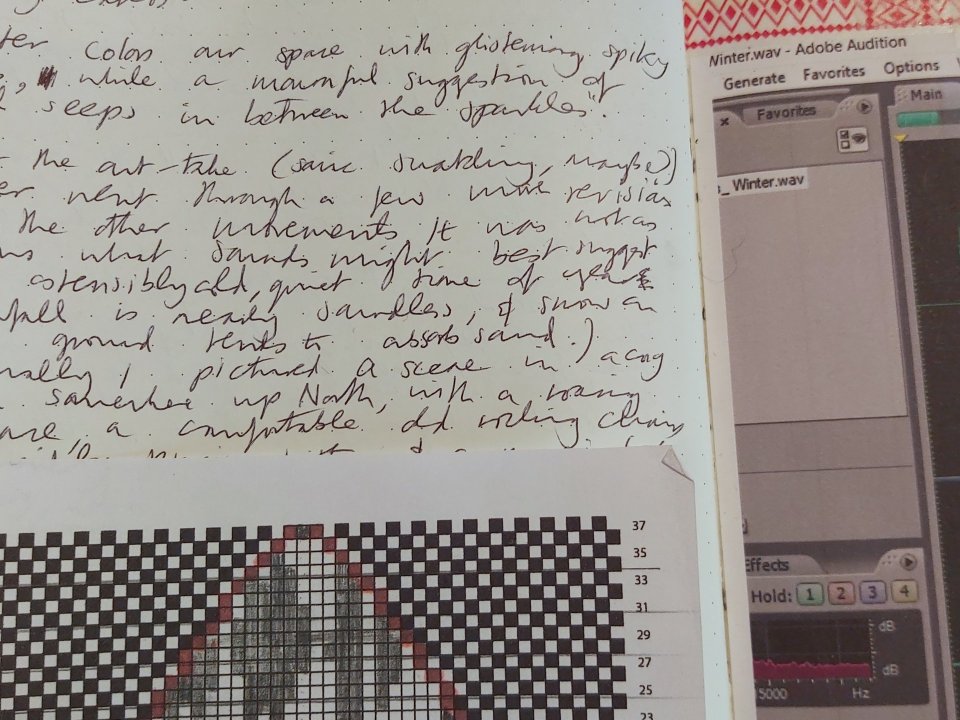 colors our space with glistening spiky
while a mournful suggestion of
seeps in between the sparkles".
the out-take (sonic doodling, maybe)
went through a few more revisions
the other movements. It was not as
what sounds might best suggest
ostensibly cold, quiet time of year
fall is nearly soundless, & snow on
ground tends to absorb sound.)
I pictured a scene in a cozy
somewhere up North, with a roaring
a comfortable old rocking chair,
Winter.wav - Adobe Audition
Generate Favorites Options
Favorites
Main
_ Winter.wav
Effects
Hold: 1 2 3 4
dB
dB
5000 Hz
37
35
33
31
29
27
25
23